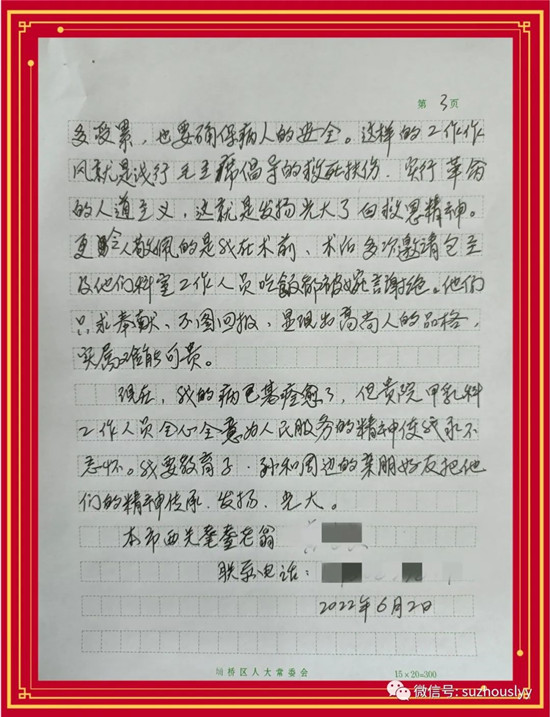 第 3 页
多受累，也要确保病人的安全。这样的工作作
风就是践行毛主席倡导的救死扶伤、实行革命
的人道主义，这就是发扬光大了白求恩精神。
更令人敬佩的是我在术前、术后多次邀请包主
及他们科室工作人员吃饭都被婉言謝绝。他们
只求奉献、不图回报，显现出高尚人的品格，
实属难能可贵。
现在，我的病已基痊愈了，但贵院甲乳科
工作人员全心全意为人民服务的精神使我永不
忘怀。我要教育子、孙和周边的亲朋好友把他
们的精神传承、发扬、光大。
本市西关耄耋老翁
联系电话：
2022年6月2日
埇桥区人大常委会
15×20=300
微信号: suzhouslyy